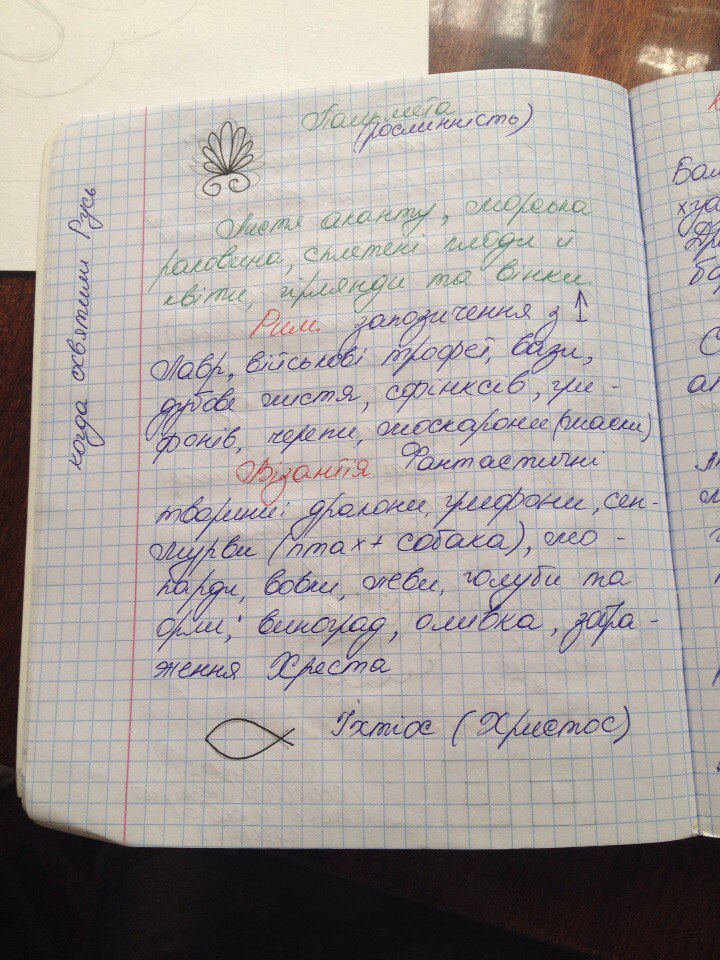 Пальмета
(рослинність)
Листя аканту, морська
раковина, сплетені плоди й
квіти, гірлянди та вінки.
Рим. запозичення з ↑
Лавр, військові трофеї, вази,
дубове листя, сфінксів, гри-
фонів, черепи, москарони (маски)
Візантія Фантастичні
тварини: дракони, грифони, сен-
мурви (птах + собака), лео-
парди, вовки, леви, голуби та
орли; виноград, оливка, зобра-
ження Хреста
Іхтіос (Христос)
когда освятили Русь